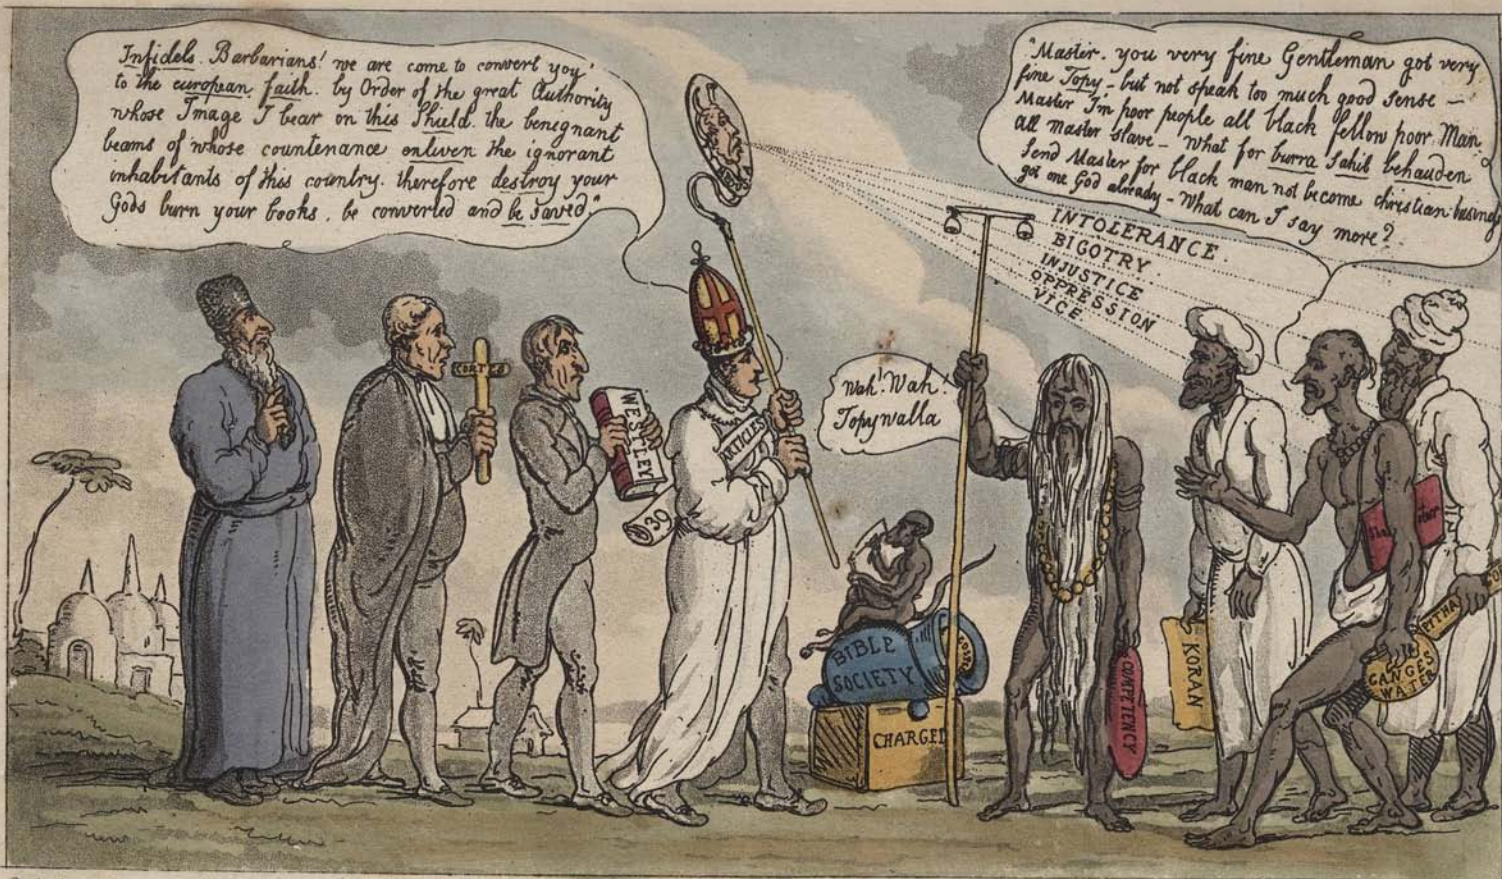 Infidels. Barbarians! we are come to convert you!
to the european faith. by Order of the great Authority
whose Image I bear on this Shield. the benegnant
beams of whose countenance enliven the ignorant
inhabitants of this country. therefore destroy your
Gods burn your books, be converted and be saved."
"Master. you very fine Gentleman got very
fine Topy - but not speak too much good sense -
Master I'm poor people all black fellow poor Man
all master slave - what for burra Sahib behauden
send Master for black man not become christian business
got one God already - What can I say more?
INTOLERANCE.
BIGOTRY.
INJUSTICE
OPPRESSION
VICE
Wah! Wah!
Topywalla
CORTES
WESTLEY
ARTICLES
39
BIBLE
SOCIETY
CHARGED
COMPETENCY
KORAN
GANGES
WATER